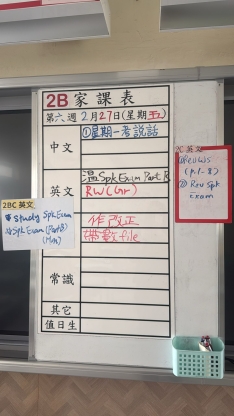 2B 家課表
第六週 2月27日(星期五)
中文
①星期一考說話
英文
溫 Spk Exam Part B
RW(Gr)
作改正
帶數file
常識
其它
值日生
2BC 英文
Study Spk Exam
Spk Exam (Part B)
(Mon)
2C 英文
①Rev WS
(p.1-8)
② Rev Spk
Exam